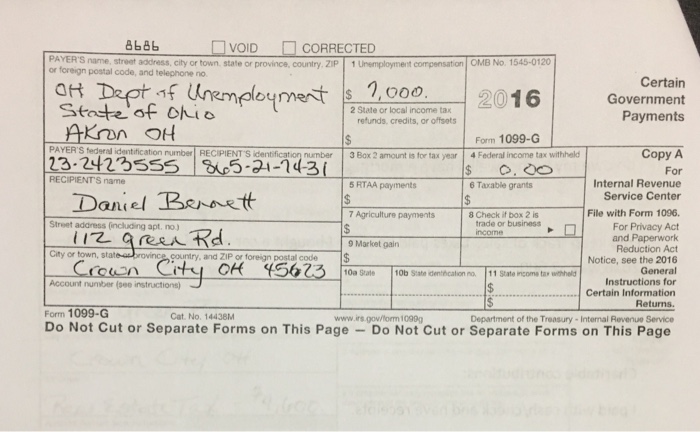 8686 VOID CORRECTED
PAYER'S name, street address, city or town, state or province, country, ZIP
or foreign postal code, and telephone no.
OH Dept of Unemployment
State of Ohio
Akron OH
1 Unemployment compensation
$ 7,000.
OMB No. 1545-0120
2016
Form 1099-G
2 State or local income tax
refunds, credits, or offsets
$
Certain
Government
Payments
PAYER'S federal identification number
23-2423555
RECIPIENT'S identification number
865-21-7431
3 Box 2 amount is for tax year
4 Federal income tax withheld
$ 0.00
Copy A
For
Internal Revenue
Service Center
File with Form 1096.
For Privacy Act
and Paperwork
Reduction Act
Notice, see the 2016
General
Instructions for
Certain Information
Returns.
RECIPIENT'S name
Daniel Bennett
5 RTAA payments
$
6 Taxable grants
$
Street address (including apt. no.)
112 green Rd.
7 Agriculture payments
$
8 Check if box 2 is
trade or business
income
9 Market gain
$
City or town, state or province, country, and ZIP or foreign postal code
Crown City OH 45623
Account number (see instructions)
10a State
10b State identification no.
11 State income tax withheld
$
$
Form 1099-G Cat. No. 14438M www.irs.gov/form1099g Department of the Treasury - Internal Revenue Service
Do Not Cut or Separate Forms on This Page — Do Not Cut or Separate Forms on This Page